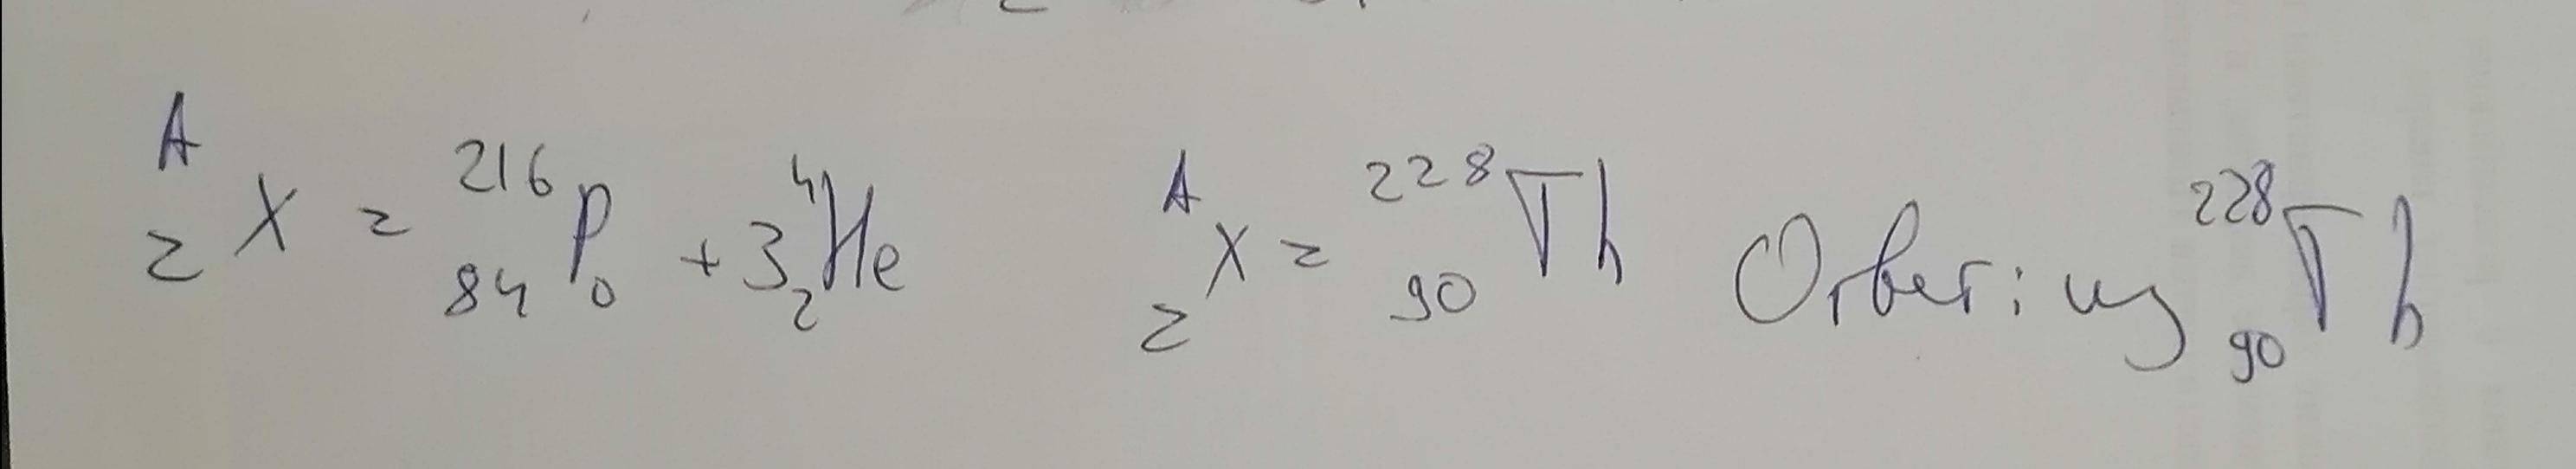 ᴬ_Z X = ²¹⁶₈₄Po + 3⁴₂He ᴬ_Z X = ²²⁸₉₀Th Ответ: из ²²⁸₉₀Th